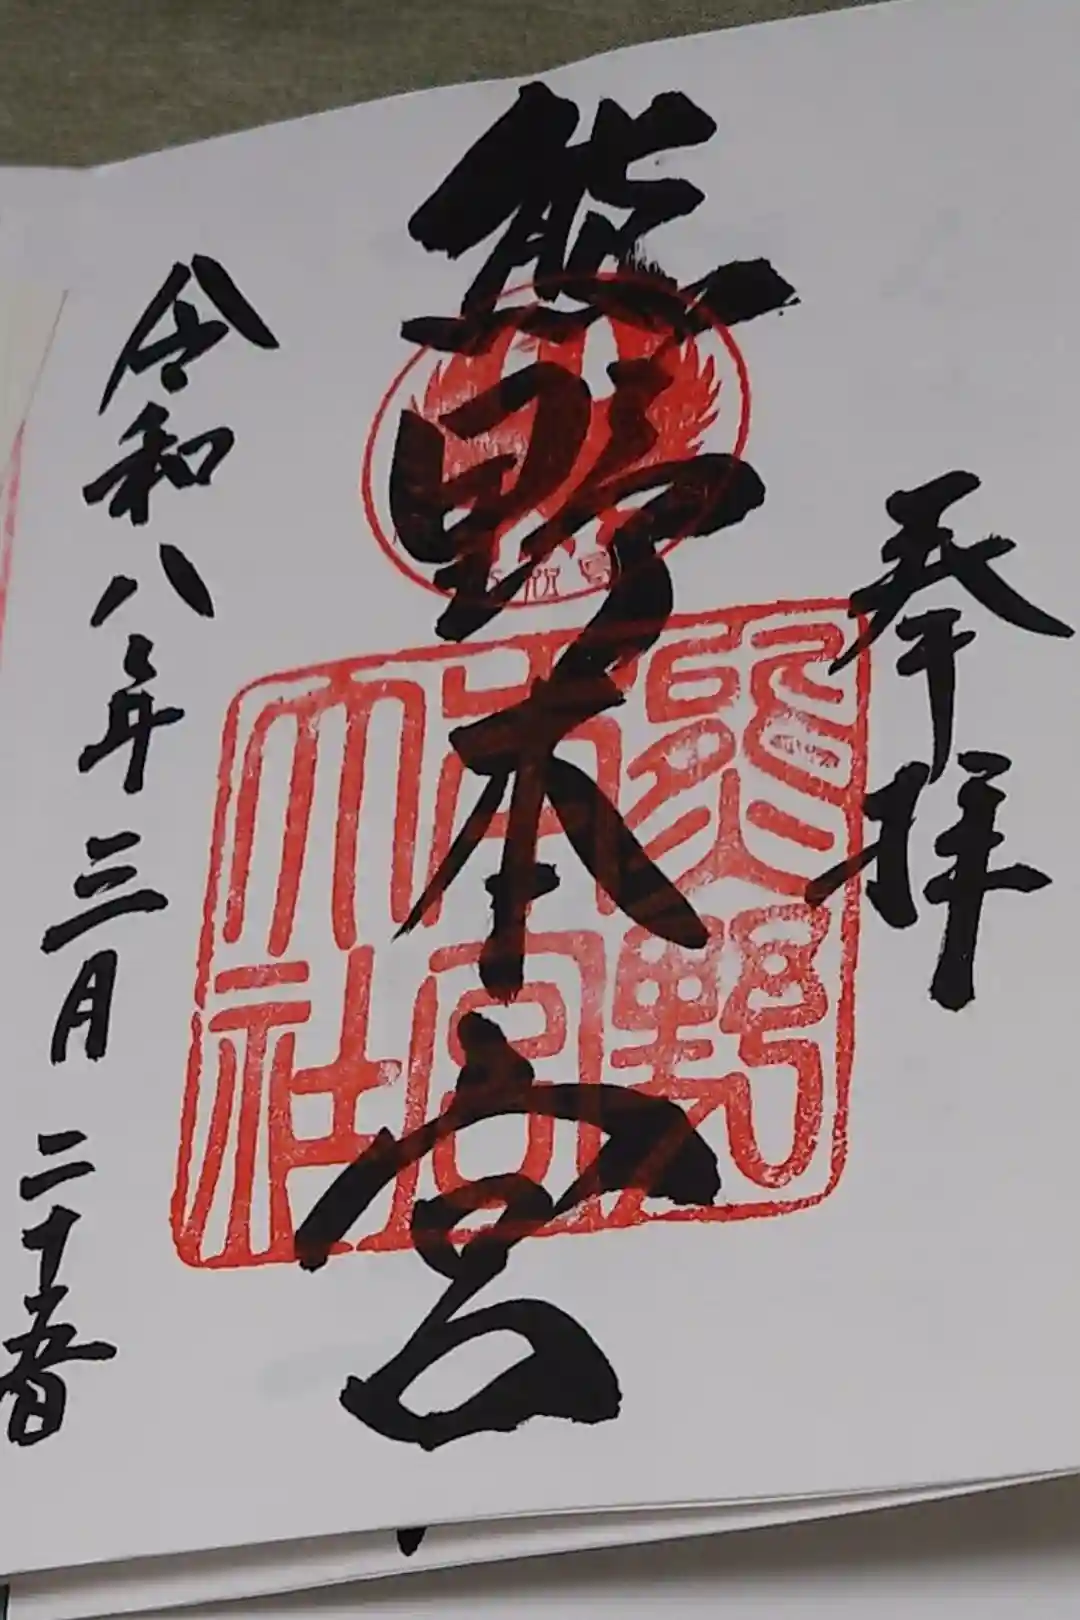 奉拝
熊野本宮
熊野
本宮
大社
令和八年三月二十五日